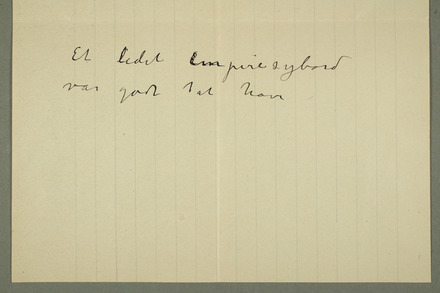 Et lidet Empiresybord
var godt at have